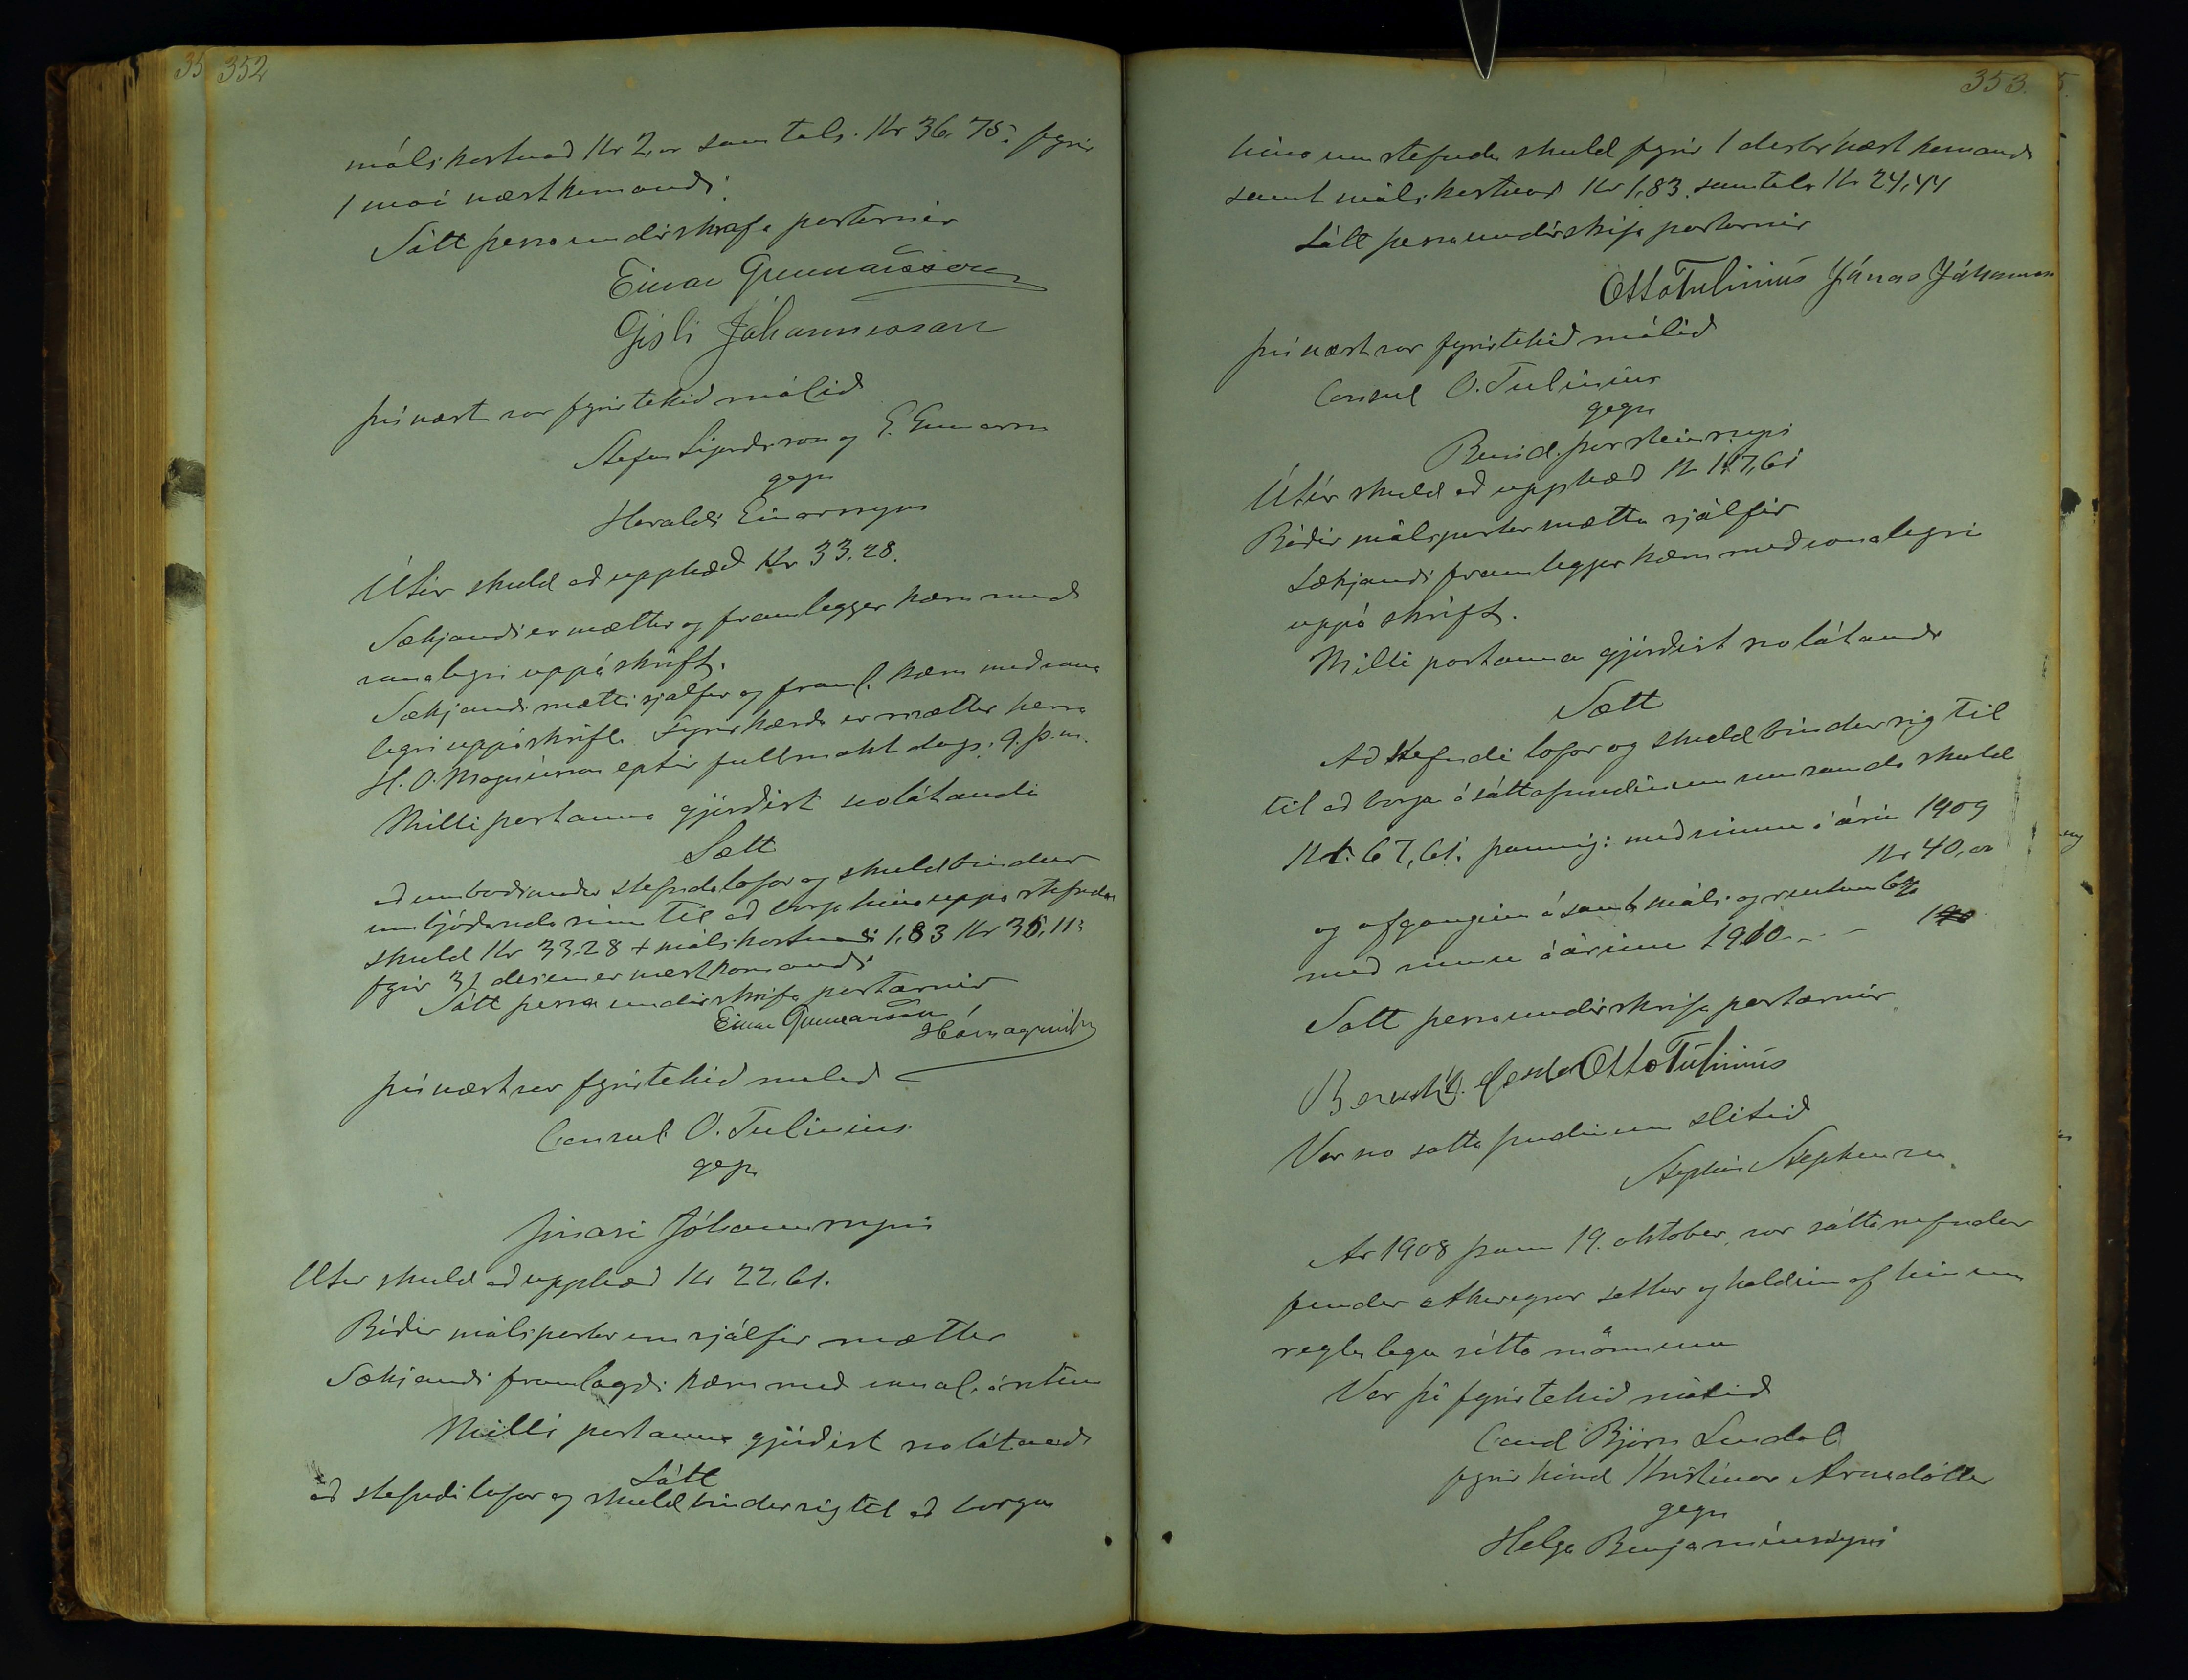 352
málskostnað Kr 2,00 samtals. Kr 36. 75. fyrir
1 maí næstkomandi.
Sátt þessa undirskrifa partarnir
Einar Gunnarsson
Gísli Jóhannesson
Þvínæst var fyrirtekið málið
Stefán Sigurðsson og E. Gunnarss
gegn
Haraldi Einarssyni
Útir skuld að upphæð Kr 33.28.
Sækjandi er mættur og framleggur kæru með
venalegri uppáskrift.
Sækjandi mætti sjálfur og framl. kæru með vana
legri uppáskrift. Fyrir kærða er mættur herra
H. O. Magnússon eptir fullmakt dags. 9. þ. m.
Milli partanna gjörðist svolátandi
Sætt
að umboðsmaður stefnda lofar og skuldbindur
umbjóðanda sinn til að borga hina uppá stefnda
skuld Kr 33.28 + málskostnaði 1,83 Kr 35,11
fyrir 31 desember næstkomandi
Sátt þessa undirskrifa partarnir
Einar Gunnarsson
Þvínæst var fyrirtekið málið
Consul O. Tulinius
gegn
Jónasi Jóhannssyni
Útir skuld að upphæð Kr 22.61.
Báðir málspartar eru sjálfir mættir
Sækjandi framlagði kæru með
Milli partanna gjörðist svolátandi
Sátt
að stefndi lofar og skuldbindur sig til að borga
353.
hina umstefndu skuld fyrir 1 desbr næst komandi
samt málskostnað Kr 1,83. samtals Kr 24,44
Sátt þessa undirskrifa partarnir
Otto Tulinius Jónas Jóhannsson
Þvínæst var fyrirtekið málið
Consul O. Tulinius
gegn
Benid. Þorsteinssyni
Útir skuld að upphæð Kr 167,61
Báðir málspartar mættu sjálfir
Sækjandi framleggur kæru með venalegri
uppá skrift.
Milli partanna gjörðist svolátandi
Sætt
Að stefndi lofar og skuldbindur sig til
til að borga á sáttafundinum umrædda skuld
Kr. 67,61. þannig: með sinnu á árin 1909
Kr 40,00
og afganginn á samt máls- og rentum 6%
með sinnu á árinu 1910
Satt þessa undirskrifa partarnir
Otto Tulinius
Var svo satta fundinum slitið
Stephán Stephensen
Ár 1908 þann 19. oktober, var sáttanefndar
fundur Akureyrar settur og haldinn af hinum
reglulegu sáttamönnum
Var þá fyrirtekið málið
Cand Björn Lindal
fyrir hönd Kristínar Árnadóttur
gegn
Helga Benjamínssyni